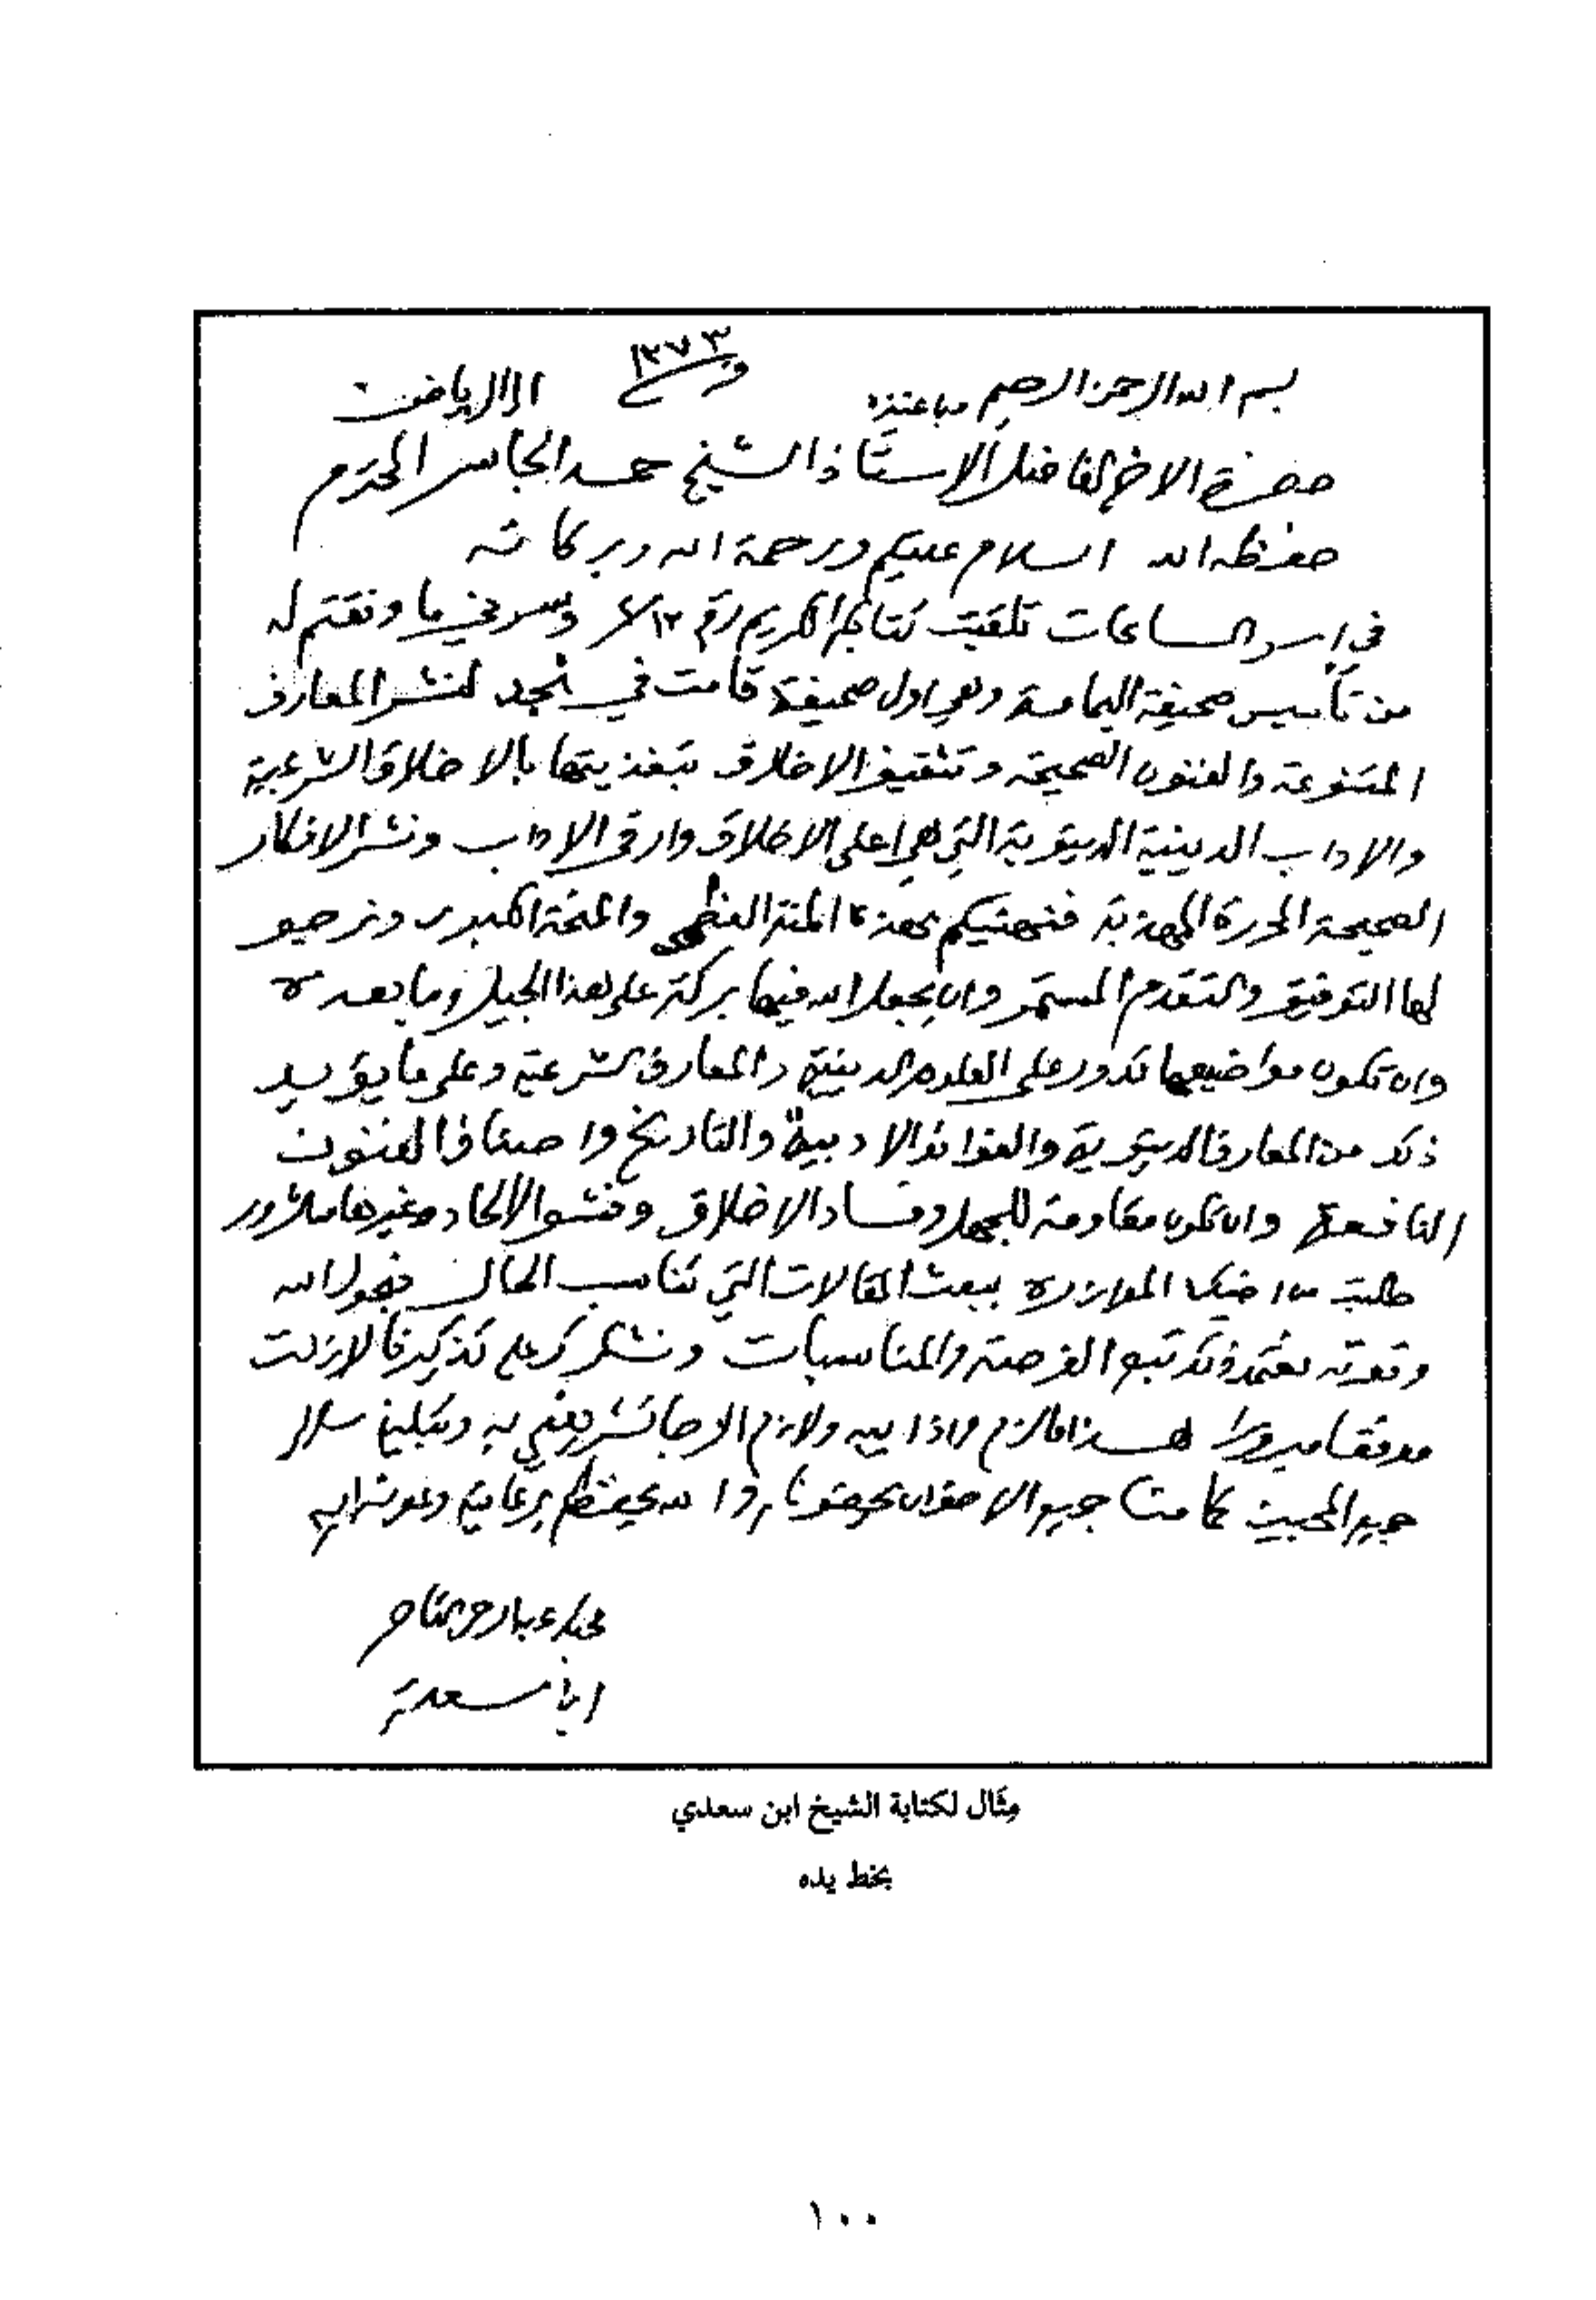 بسم الله الرحمن الرحيم من عنيزة ١٣٧٣ الى الرياض
حضرة الاخ الفاضل الاستاذ الشيخ حمد الجاسر المحترم
حفظه الله السلام عليكم ورحمة الله وبركاته
في اسر الساعات تلقيت كتابكم الكريم رقم وسرني ما وفقتم له
من تأسيس صحيفة اليمامة وهي اول صحيفة قامت في نجد لنشر المعارف
المتنوعة والفنون الصحيحة وتثقيف الاخلاق بتغذيتها بالاخلاق الشرعية
والاداب الدينية الدنيوية التي هي اعلى الاخلاق وارقى الاداب ونشر الافكار
الصحيحة الحررة المهذبة فنهنيكم بهذه المنة العظمى والمنحة الكبرى ونرجو
لها التوفيق والتقدم المستمر وان يجعل الله فيها بركة على هذا الجيل وما بعده
وان تكون مواضيعها تدور على العلوم الدينية والمعارف الشرعية وعلى ما يؤيد
ذلك من المعارف الدنيوية والفوائد الادبية والتاريخ واصناف الفنون
النافعة وان تكون مقاومة للجهل وفساد الاخلاق وفشو الالحاد وغيرها من الشرور
طلبت من اخيك الموازرة ببعث المقالات التي تناسب الحال فبحول الله
وقوته نعتمد ذلك تبع الفرصة والمناسبات ونشكرك على تذكيرنا لازلت
موفقا مبرورا هذا ما لزم واذا بدا لازم الرجا تشرفني به وتبليغ سلامي
جميع المحبين كما منا جميع الاخوان يخصونك والله يحفظكم برعايته
محبك عبد الرحمن الناصر
ابن سعدي
مثال لكتابة الشيخ ابن سعدي
بخط يده
١٠٠